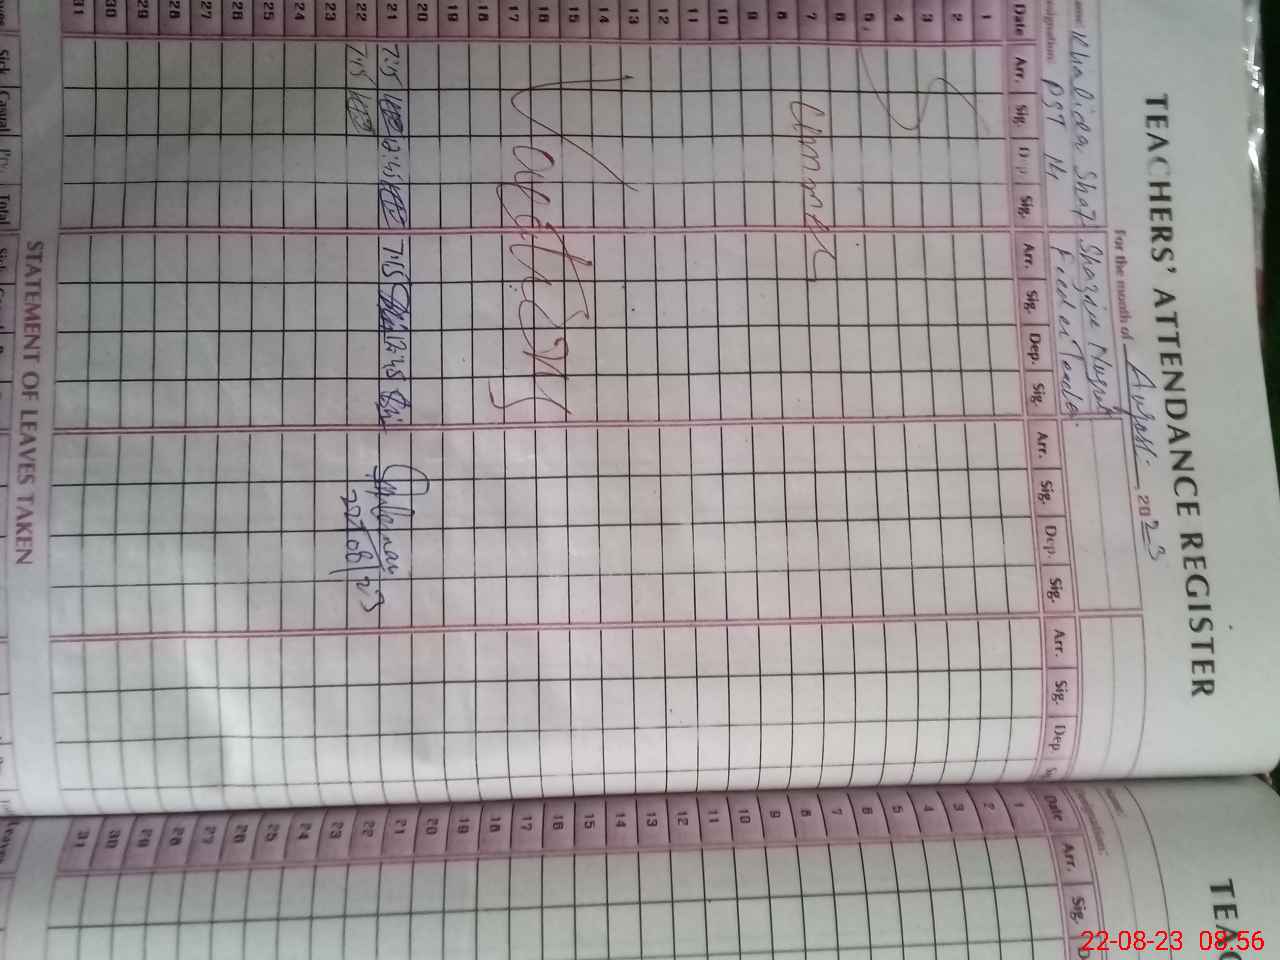 TEACHERS' ATTENDANCE REGISTER
For the month of August 2023
Khalida Shaf Shazia Nusrat
PST 14 Feeder Teacher
Date Arr. Sig. Dep. Sig. Arr. Sig. Dep. Sig. Arr. Sig. Dep. Sig. Arr. Sig. Dep.
1
2
3
4
5
6
7
8
9
10
11
12
13
14
15
16
17
18
19
20
21 7:15 12:45 7:15 12:45
22 7:15
22/08/23
23
24
25
26
27
28
29
30
31
Summer
Vacations
STATEMENT OF LEAVES TAKEN
Sick Casual Total
TEAC
Date Arr. Sig.
1
2
3
4
5
6
7
8
9
10
11
12
13
14
15
16
17
18
19
20
21
22
23
24
25
26
27
28
29
30
31
22-08-23 08:56